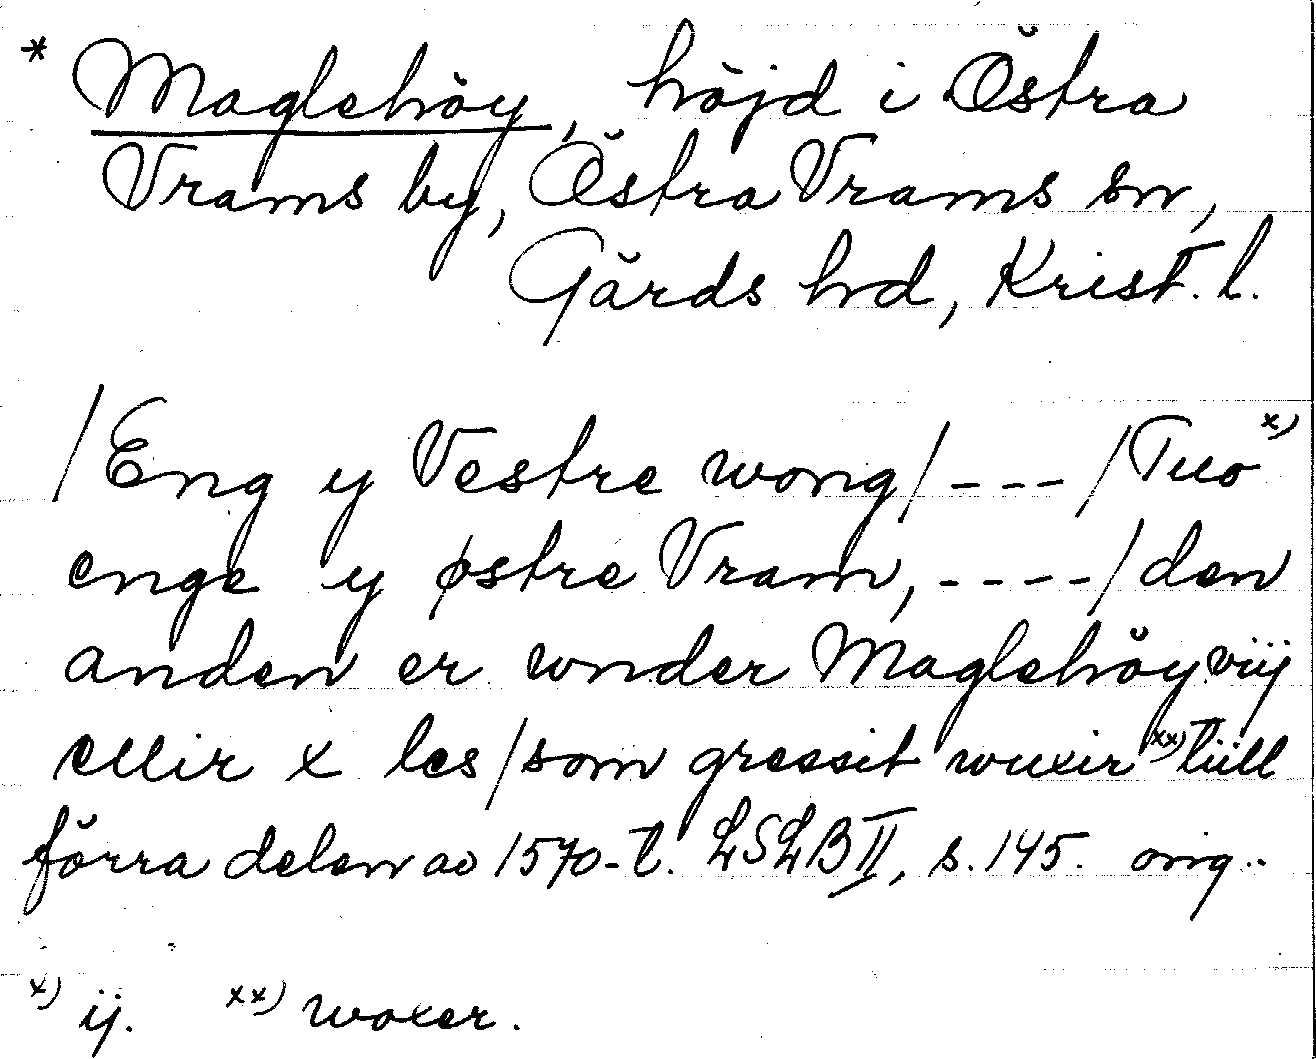 * Maglehöy, höjd i Östra
Vrams by, Östra Vrams sn,
Gärds hd, Krist. l.
/Eng y Vestre wong/ - - - /Tuo x)
enge y østre Vram, - - - - /den
anden er wnder Maglehöy viij
ellir x les/som gressit wuxir xx) tiill
förra delen av 1570-t. LSLB II, s. 145. orig..
x) ij. xx) woxer.